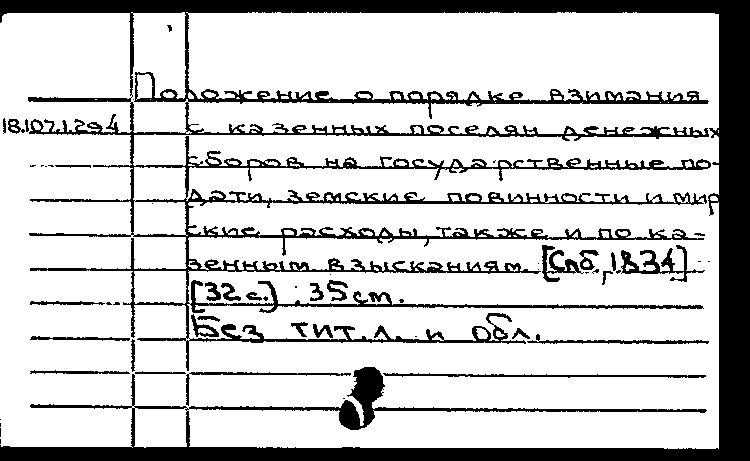 Положение о порядке взимания
18.107.1.294 с казенных поселян денежных
сборов на государственные по-
дати, земские повинности и мир
ские расходы, также и по ка-
зенным взысканиям. [Спб, 1834]
[32 с.]. 35 cm.
Без тит. л. и обл.